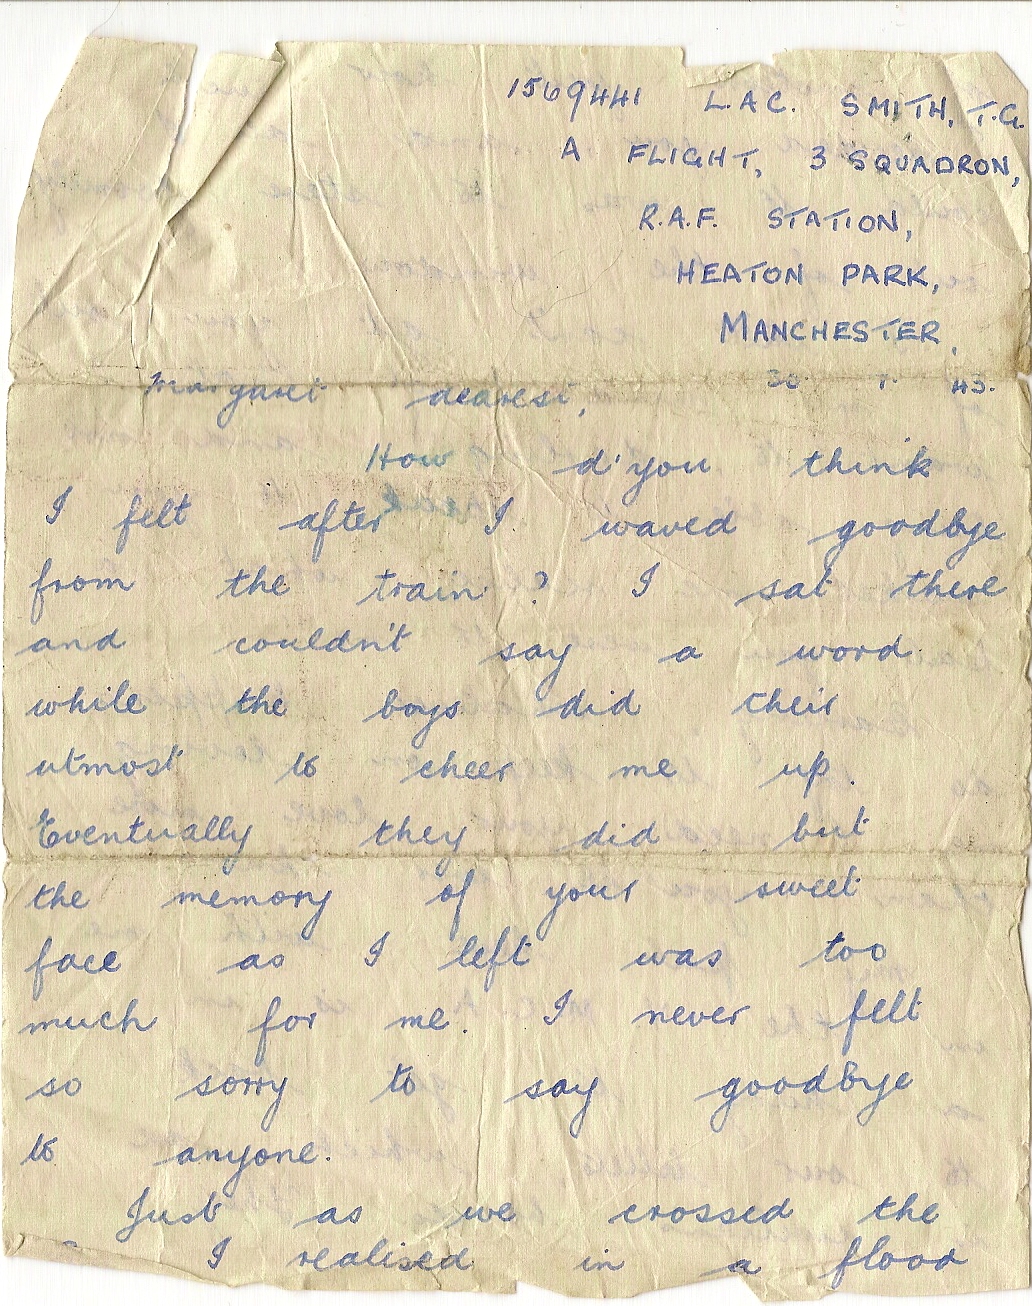 1569441 L.A.C. SMITH, T.G.
A FLIGHT, 3 SQUADRON,
R.A.F. STATION,
HEATON PARK,
MANCHESTER,
30. 43.
Margaret dearest,
How d'you think
I felt after I waved goodbye
from the train? I sat there
and couldn't say a word
while the boys did their
utmost to cheer me up.
Eventually they did but
the memory of your sweet
face as I left was too
much for me. I never felt
so sorry to say goodbye
to anyone.
Just as we crossed the
I realised in a flood